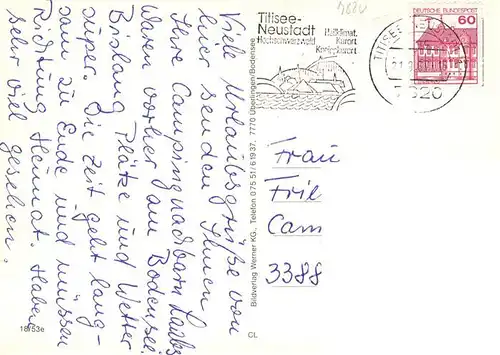 Viele Urlaubsgrüße von
hier senden Ihnen
Ihre Campingnachbarn
Waren vorher am Bodensee.
Bislang Plätze und Wetter
super. Die Zeit geht lang-
sam zu Ende und müssen
Richtung Heimat. Haben
sehr viel gesehen.
18/53e
Bildverlag Werner KG., Telefon 0 75 51 / 6 19 37, 7770 Überlingen/Bodensee
CL
Titisee-
Neustadt
Hochschwarzwald
Heilklimat.
Kurort
Kneippkurort
TITISEE-NEUSTADT
7820
DEUTSCHE BUNDESPOST
60
Frau
Cam
3388